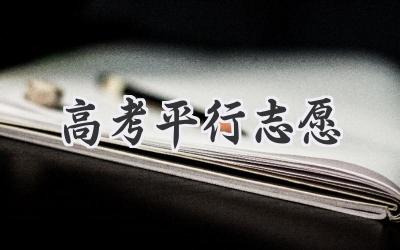 高考平行志愿